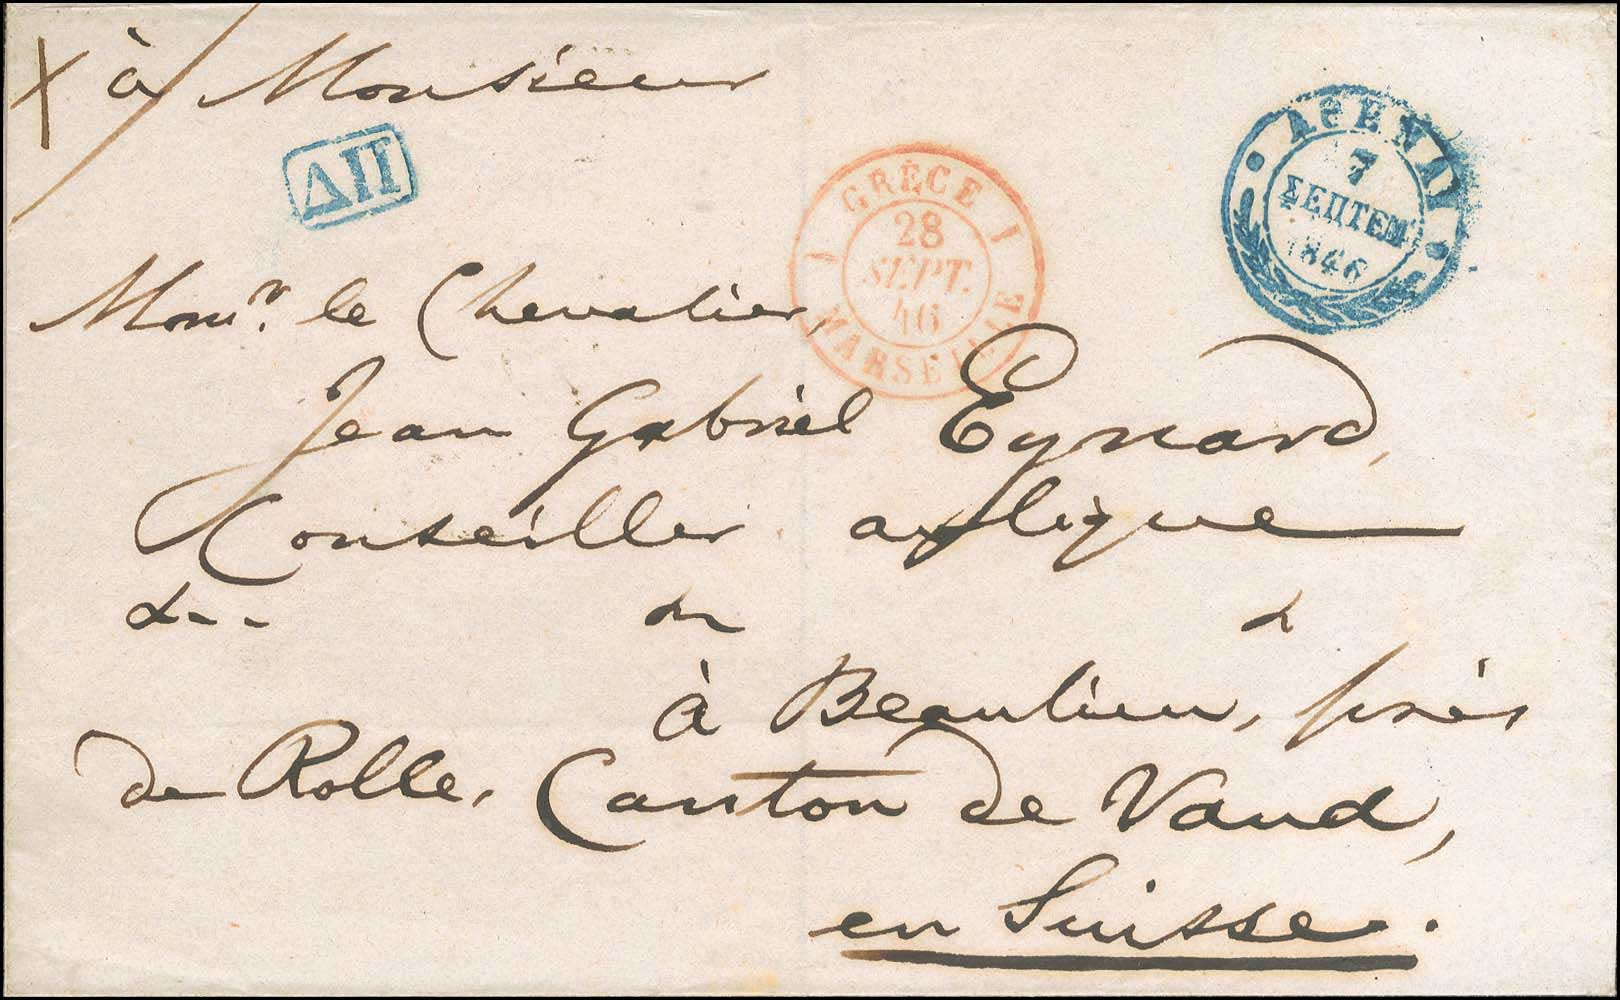 à Monsieur
ΔΠ
GRÈCE
28
SEPT.
46
MARSEILLE
ΑΘΗΝΑΙ
7
ΣΕΠΤΕΜ
1846
Monsr. le Chevalier,
Jean Gabriel Eynard,
Conseiller aulique
à Beaulieu, près
de Rolle, Canton de Vaud,
en Suisse.